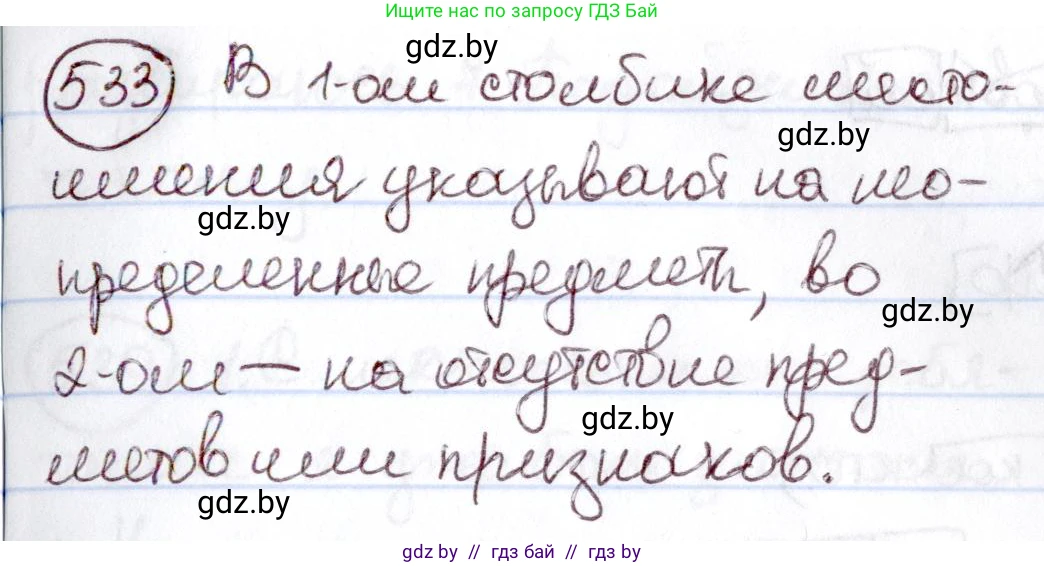 Ищите нас по запросу ГДЗ Бай
gdz.by
533 В 1-ом столбике место-
gdz.by
имения указывают на но-
gdz.by
пределенные предметы, во
gdz.by
2-ом — на отсутствие пред-
gdz.by
метов или признаков.
gdz.by
gdz by // гдз бай // гдз by